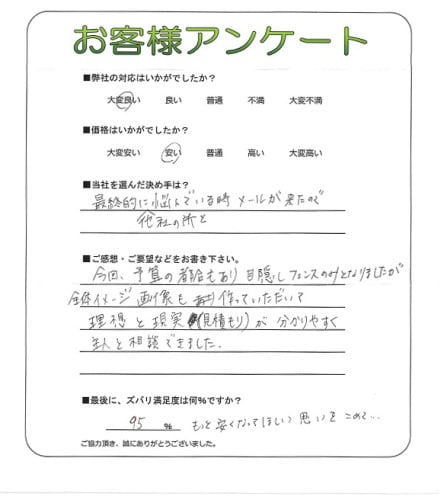 お客様アンケート
■弊社の対応はいかがでしたか?
大変良い 良い 普通 不満 大変不満
■価格はいかがでしたか?
大変安い 安い 普通 高い 大変高い
■当社を選んだ決め手は?
最終的に悩んでいる時 メールが来たので
他社の所と
■ご感想・ご要望などをお書き下さい。
今回、予算の都合もあり 目隠しフェンスのみとなりましたが
全体イメージ 画像も 作っていただいて
理想と現実(見積もり)が 分かりやすく
主人と相談できました。
■最後に、ズバリ満足度は何%ですか?
95 % もっと安くなってほしい 思いをこめて...
ご協力頂き、誠にありがとうございました。